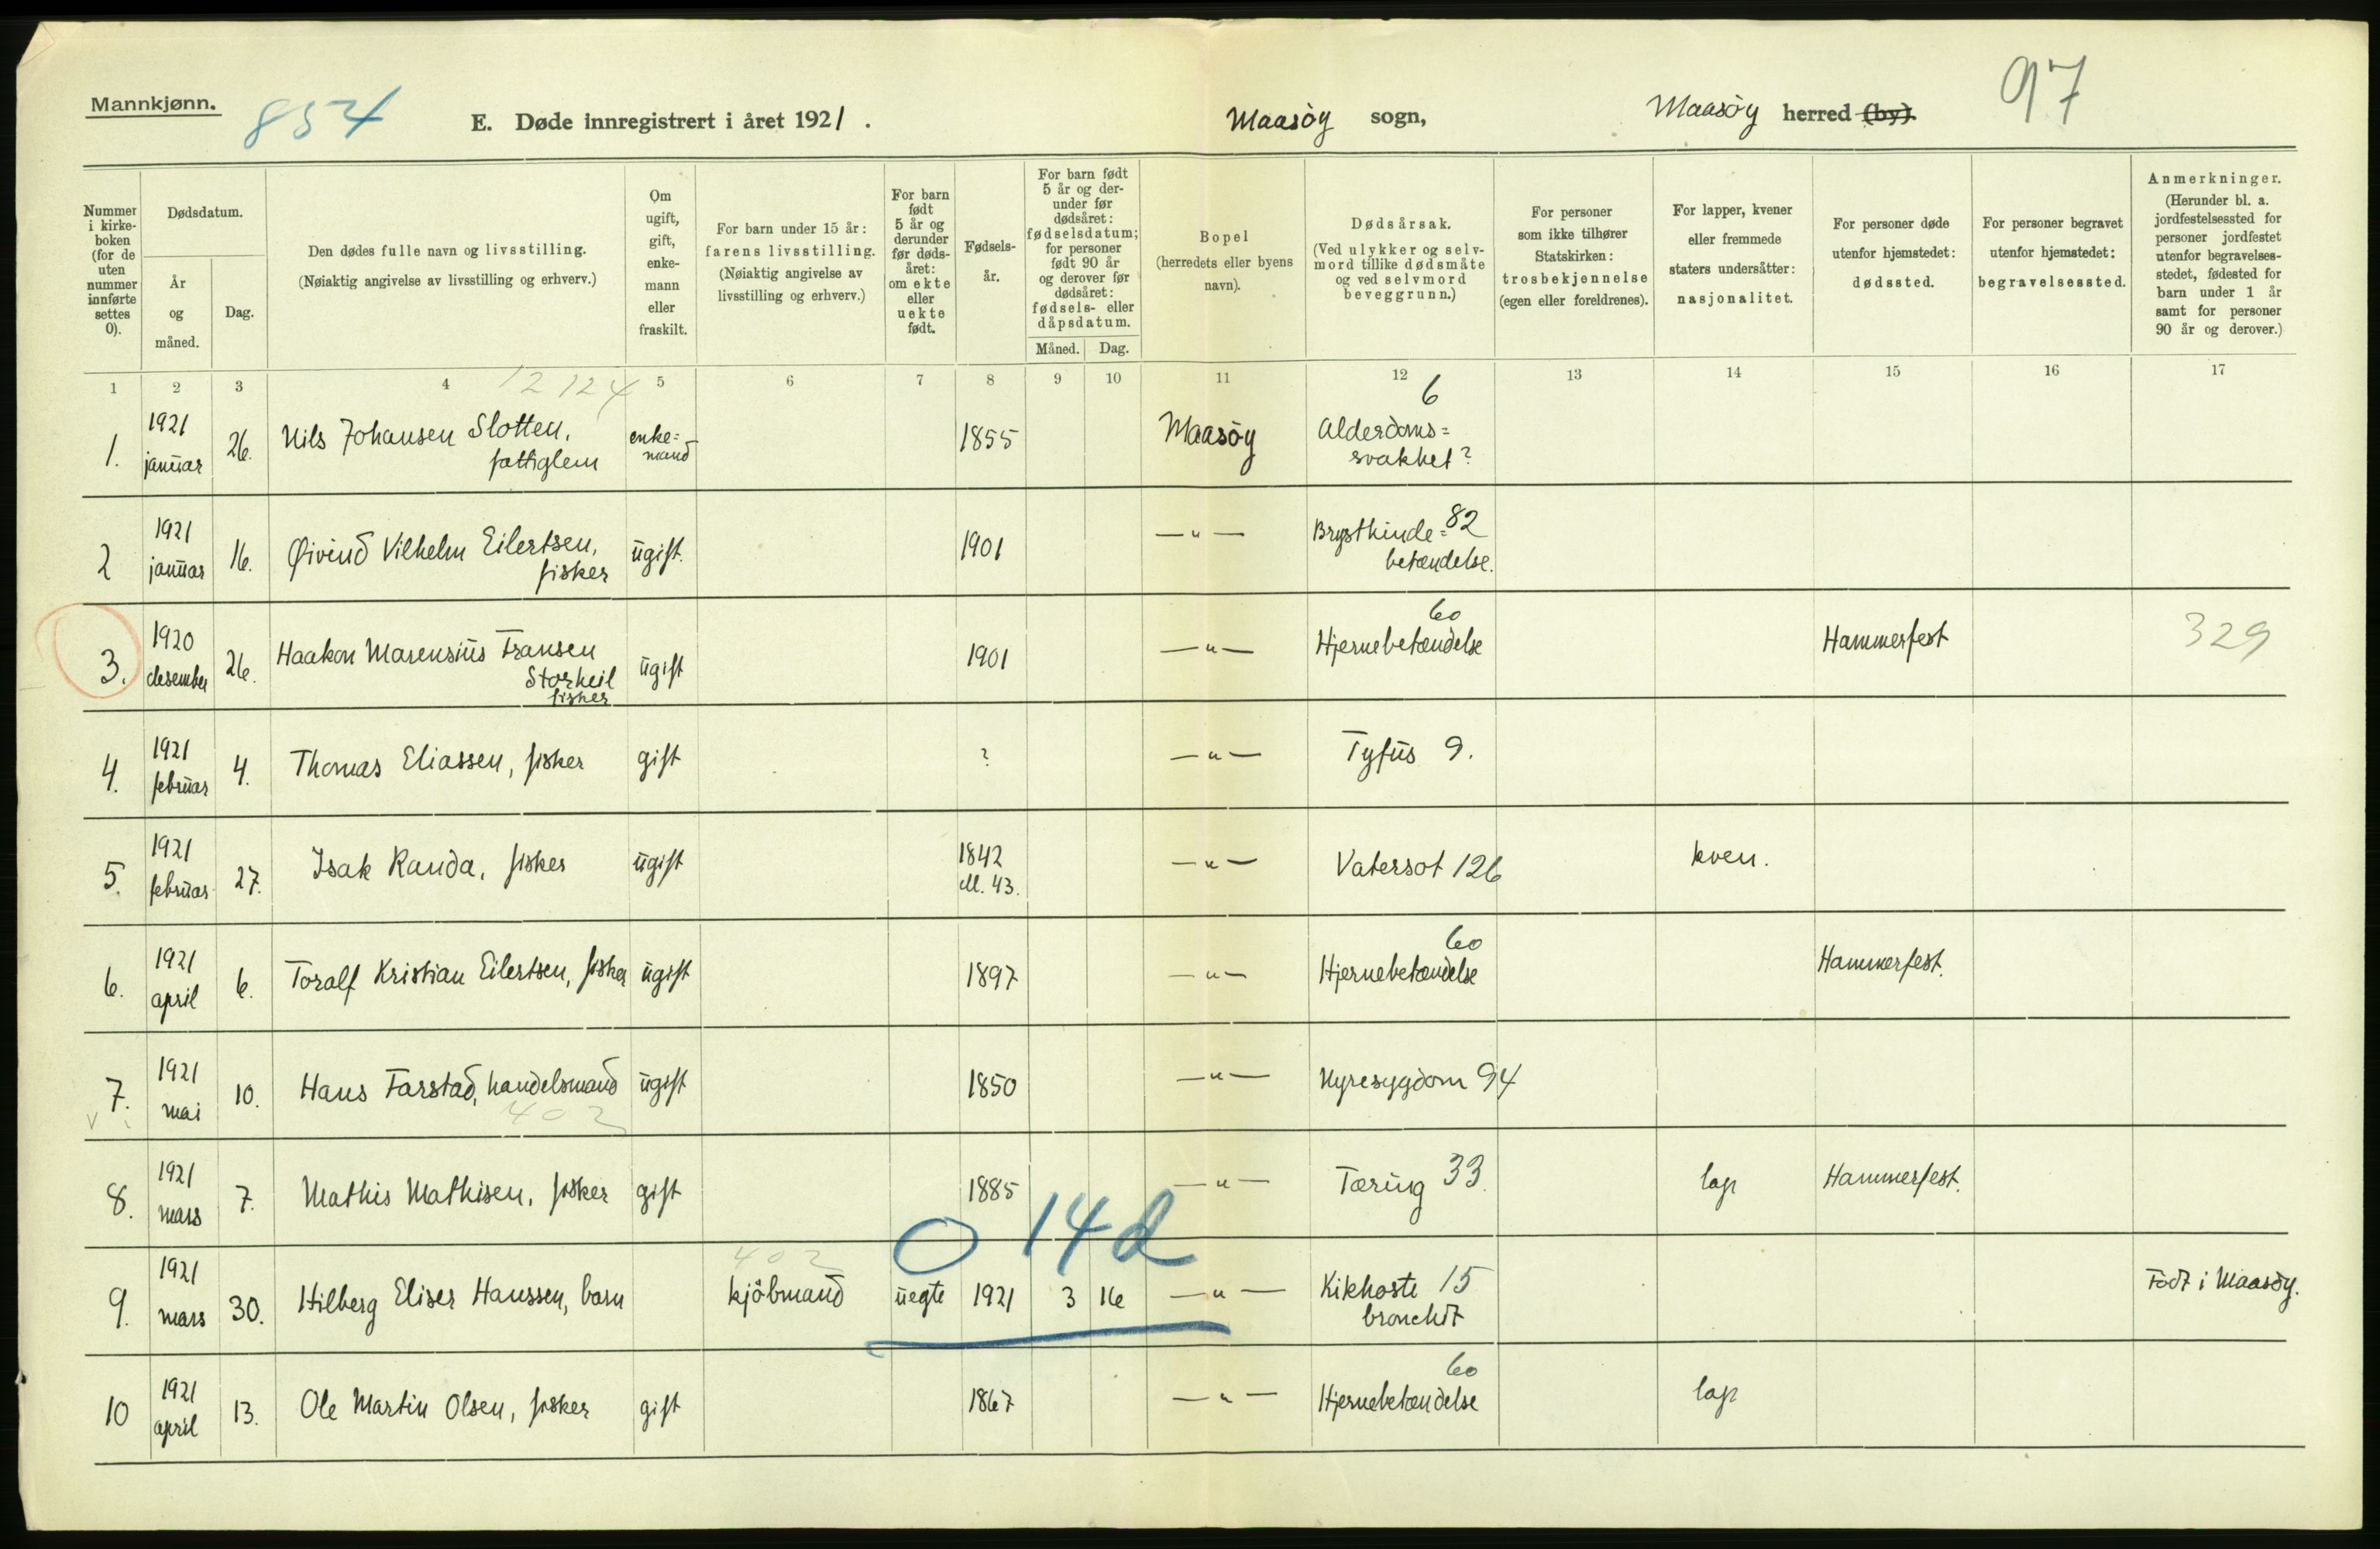 Mannkjønn.
854
E. Døde innregistrert i året 1921.
Maasöy sogn,
Maasöy herred (by).
97
Nummer i kirke-boken (for de uten nummer innførte settes 0).
Dødsdatum.
År og måned.
Dag.
Den dødes fulle navn og livsstilling.
(Nøiaktig angivelse av livsstilling og erhverv.)
Om ugift, gift, enke-mann eller fraskilt.
For barn under 15 år:
farens livsstilling.
(Nøiaktig angivelse av livsstilling og erhverv.)
For barn født 5 år og derunder før døds-året: om ekte eller uekte født.
Fødsels-år.
For barn født 5 år og der-under før dødsåret: fødselsdatum; for personer født 90 år og derover før dødsåret: fødsels- eller dåpsdatum.
Måned. Dag.
Bopel
(herredets eller byens navn).
Dødsårsak.
(Ved ulykker og selv-mord tillike dødsmåte og ved selvmord beveggrunn.)
For personer som ikke tilhører Statskirken: trosbekjennelse (egen eller foreldrenes).
For lapper, kvener eller fremmede staters undersåtter: nasjonalitet.
For personer døde utenfor hjemstedet: dødssted.
For personer begravet utenfor hjemstedet: begravelsessted.
Anmerkninger.
(Herunder bl. a. jordfestelsessted for personer jordfestet utenfor begravelses-stedet, fødested for barn under 1 år samt for personer 90 år og derover.)
1 2 3 4 5 6 7 8 9 10 11 12 13 14 15 16 17
12 124
6
1. 1921 januar 26. Nils Johansen Slotten, fattiglem enke=mand 1855 Maasöy Alderdoms=svakhet?
2 1921 januar 16. Øivind Vilhelm Eilertsen, fisker ugift. 1901 —„— Brysthinde=betændelse. 82
3. 1920 desember 26. Haakon Marensius Fransen Storkeil fisker ugift 1901 —„— 60 Hjernebetændelse Hammerfest 329
4. 1921 februar 4. Thomas Eliassen, fisker gift ? —„— Tyfus 9.
5. 1921 februar 27. Isak Randa, fisker ugift 1842 ell. 43. —„— Vatersot 126 kven.
6. 1921 april 6. Toralf Kristian Eilertsen, fisker ugift 1897 —„— 60 Hjernebetændelse Hammerfest.
7. 1921 mai 10. Hans Farstad, handelsmand ugift 1850 —„— Nyresygdom 94
402
8. 1921 mars 7. Mathis Mathisen, fisker gift 1885 —„— Tæring 33. lap Hammerfest.
0 14d
402
9. 1921 mars 30. Hilberg Eliser Hanssen, barn kjöbmand uegte 1921 3 16 —„— Kikhoste 15 bronchit Födt i Maasöy.
10 1921 april 13. Ole Martin Olsen, fisker gift 1867 —„— 60 Hjernebetændelse lap